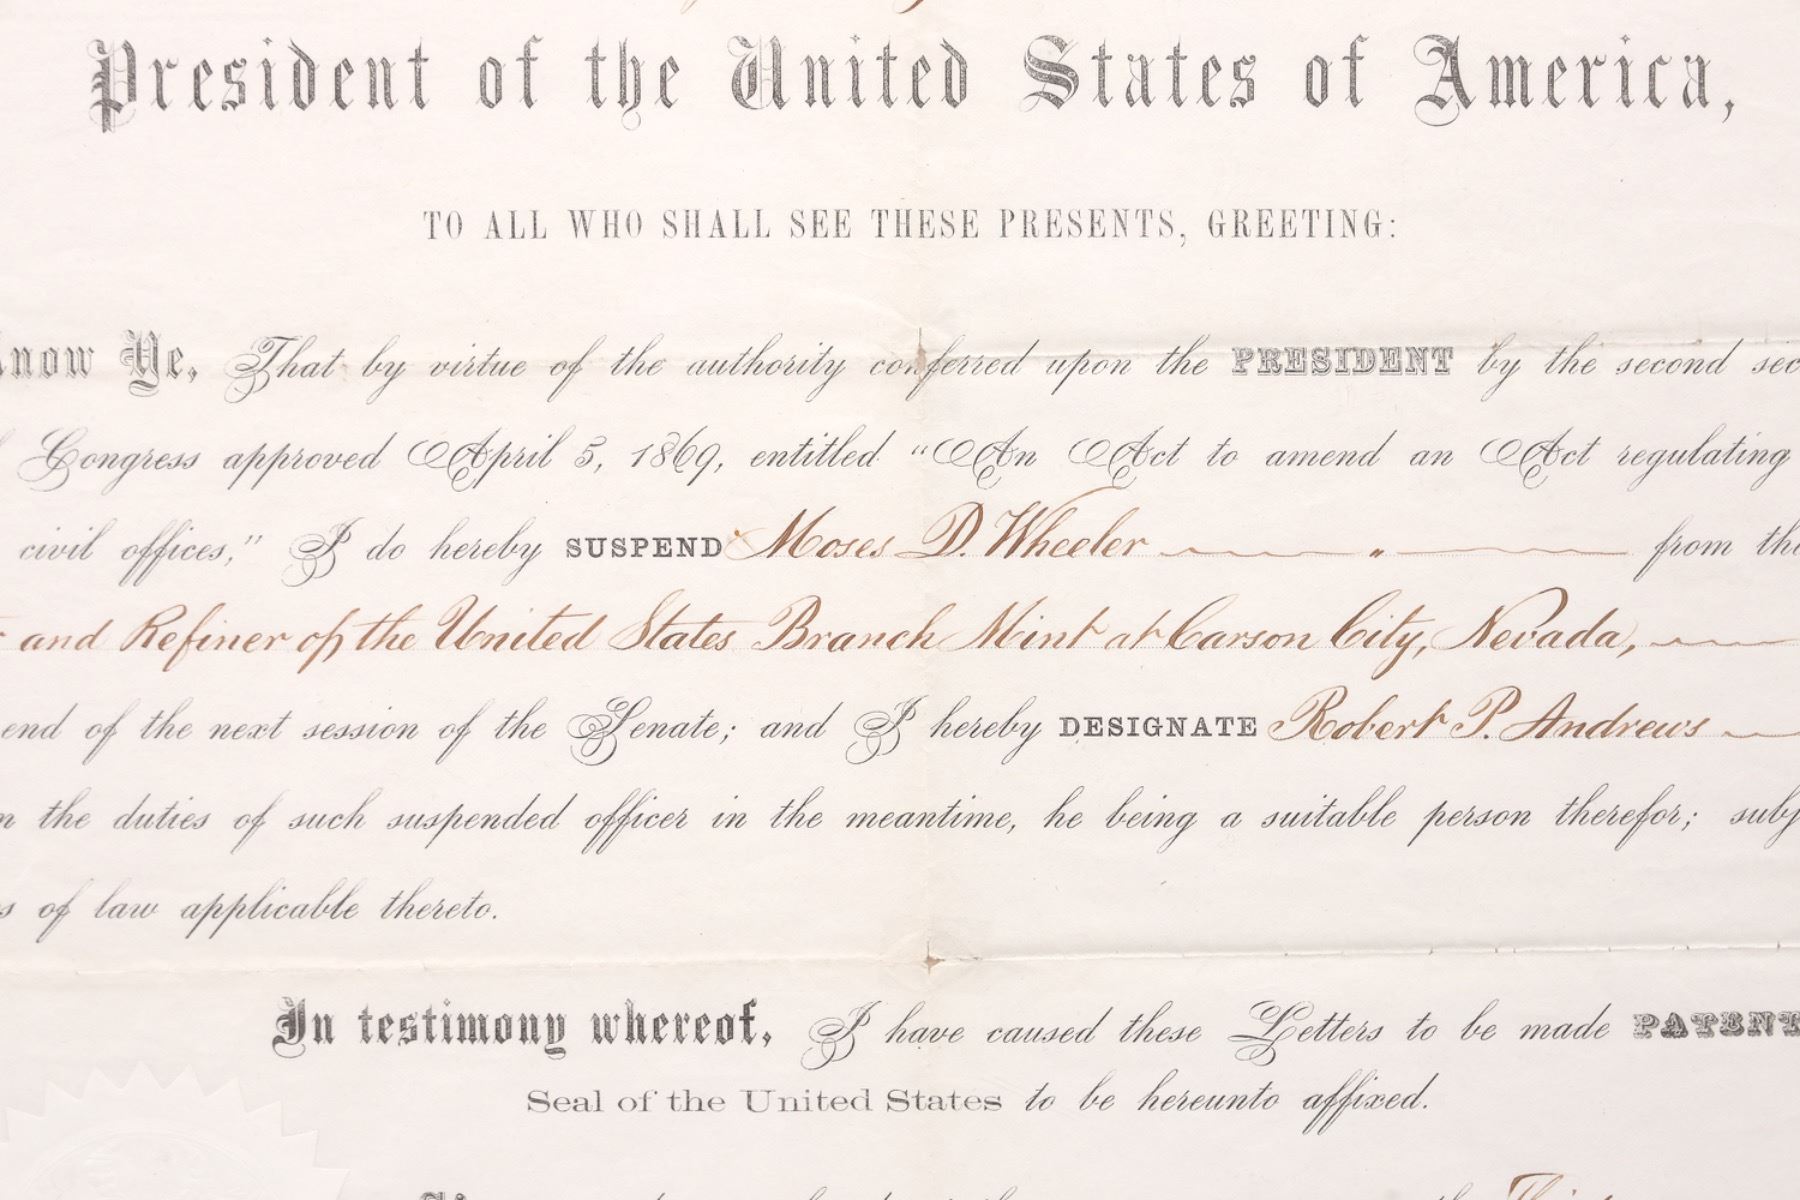 President of the United States of America,
TO ALL WHO SHALL SEE THESE PRESENTS, GREETING:
Know Ye, That by virtue of the authority conferred upon the PRESIDENT by the second sec
Congress approved April 5, 1869, entitled "An Act to amend an Act regulating
civil offices," I do hereby SUSPEND Moses D. Wheeler from the
and Refiner of the United States Branch Mint at Carson City, Nevada,
end of the next session of the Senate; and I hereby DESIGNATE Robert P. Andrews
the duties of such suspended officer in the meantime, he being a suitable person therefor; subj
of law applicable thereto.
In testimony whereof, I have caused these Letters to be made PATENT
Seal of the United States to be hereunto affixed.